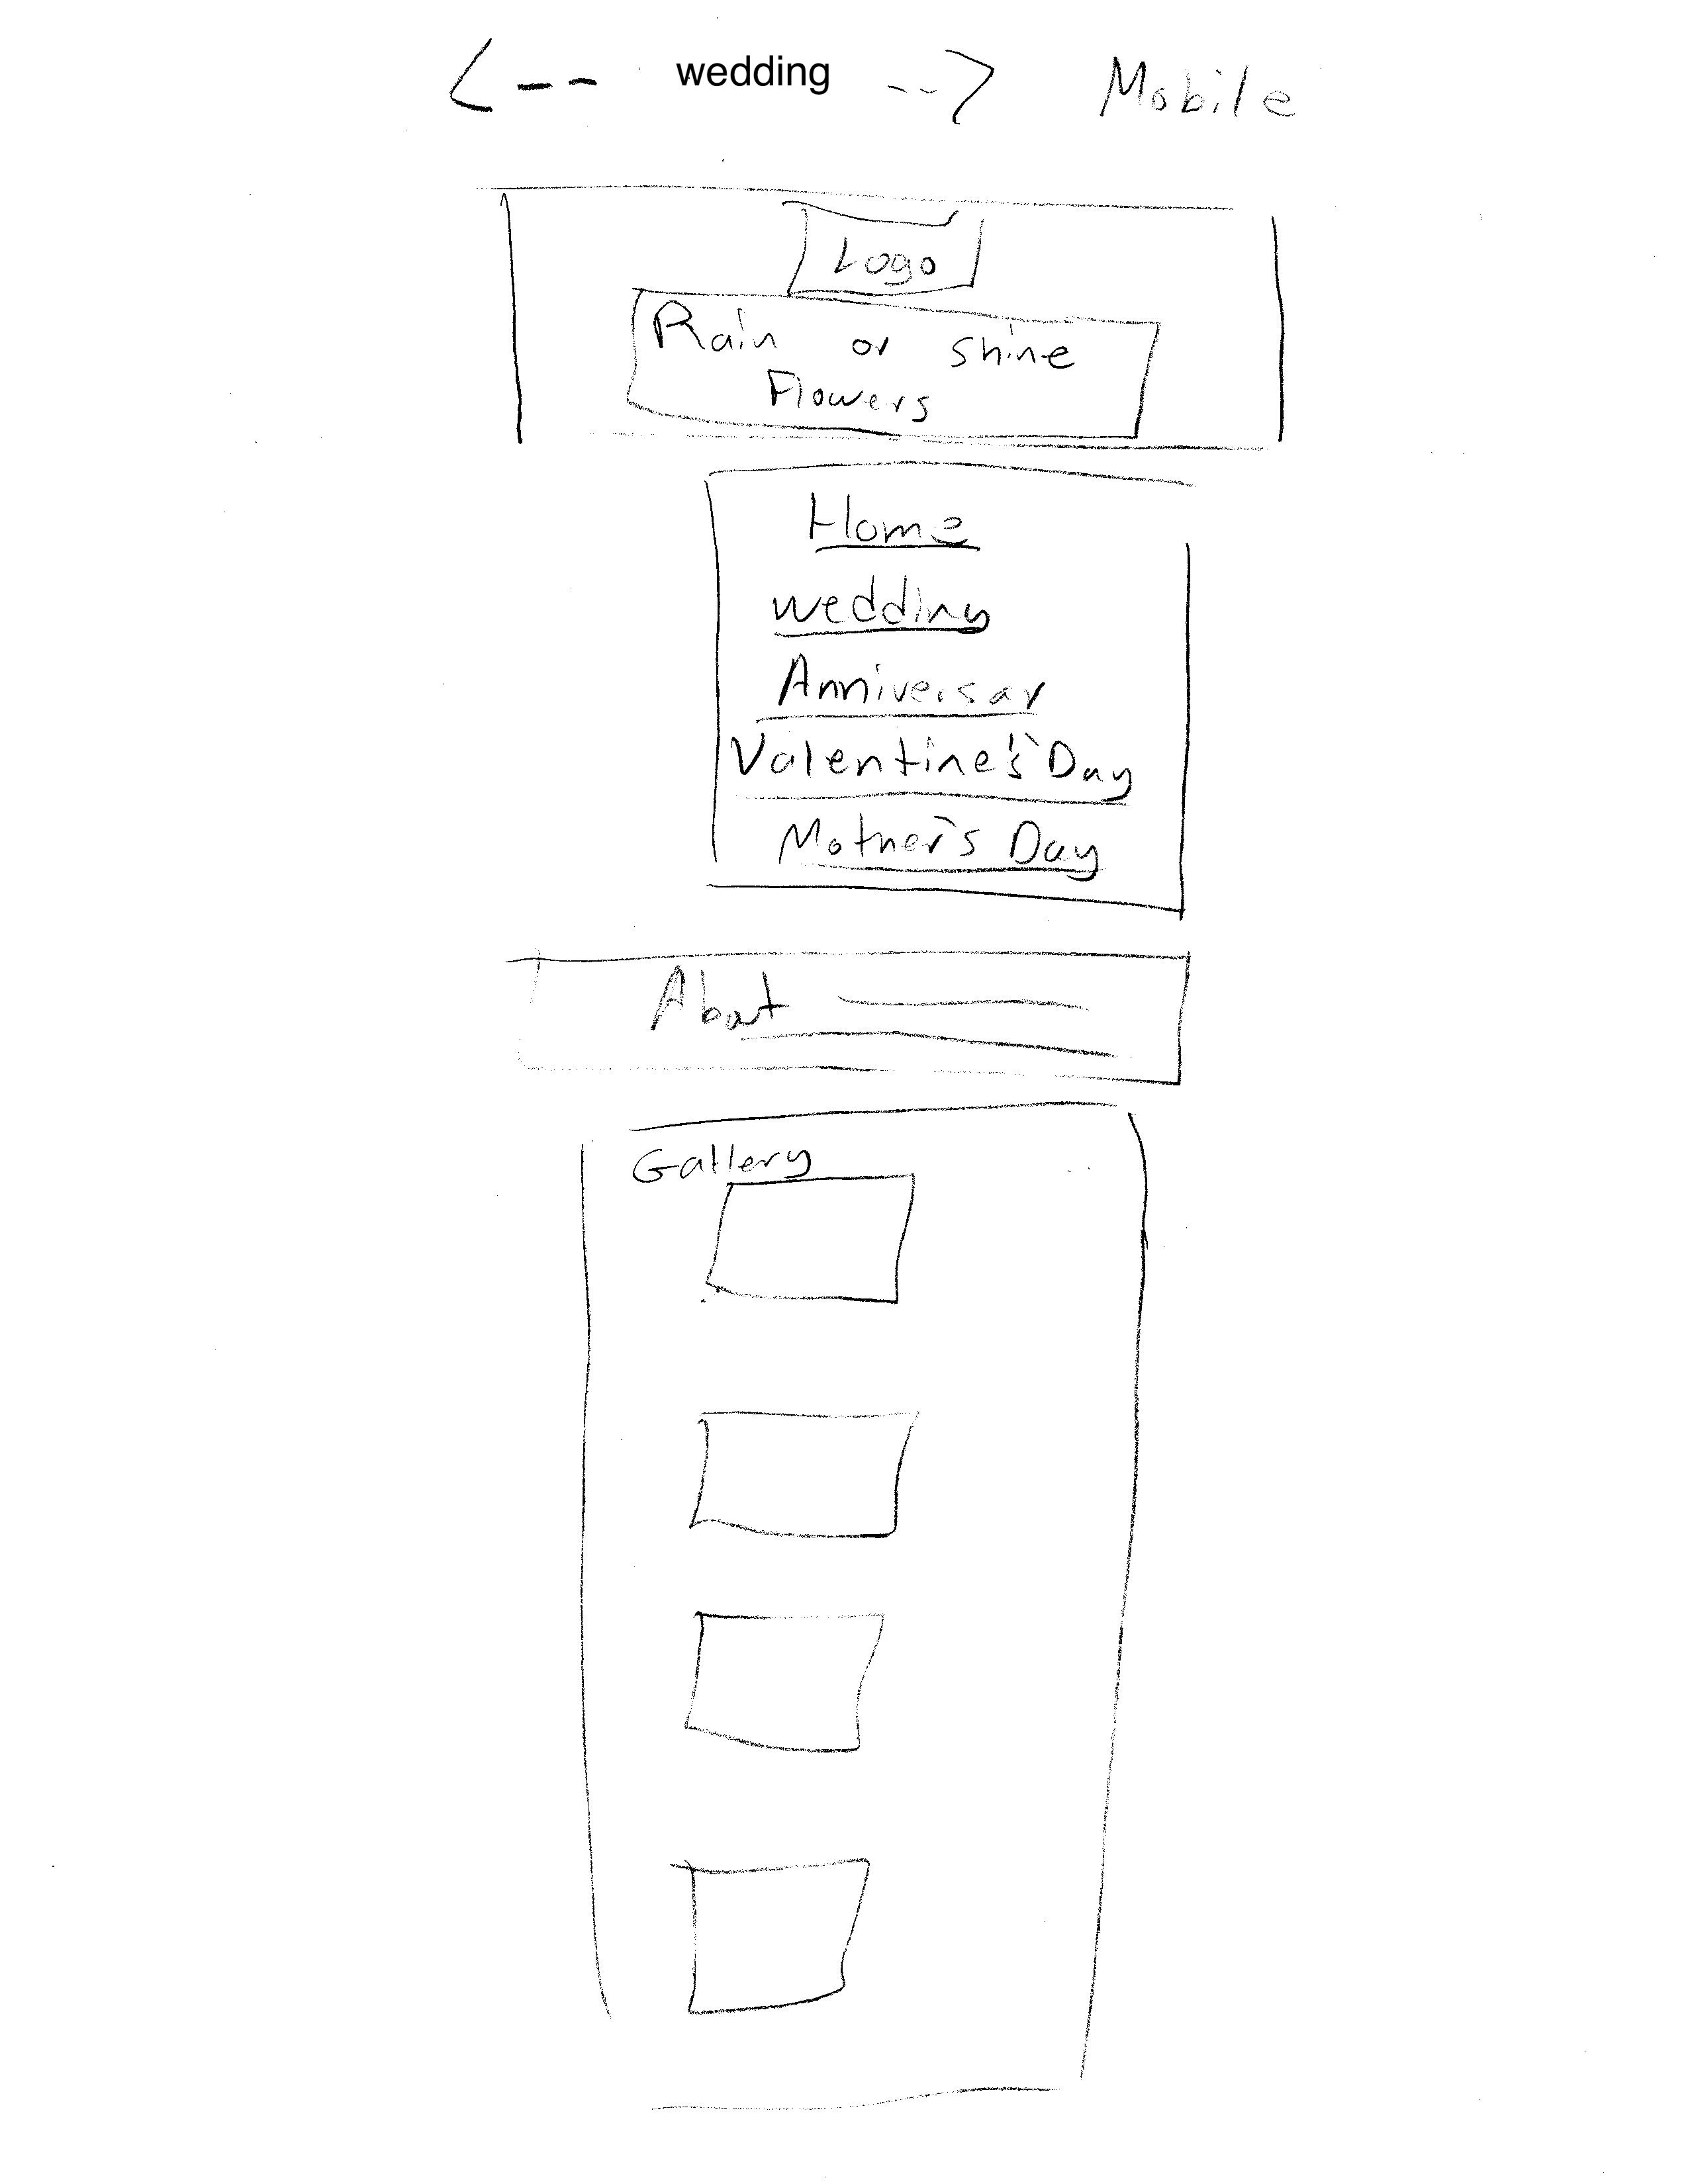 <-- wedding --> Mobile
Logo
Rain or shine
Flowers
Home
wedding
Anniversar
Valentine's Day
Mother's Day
About
Gallery